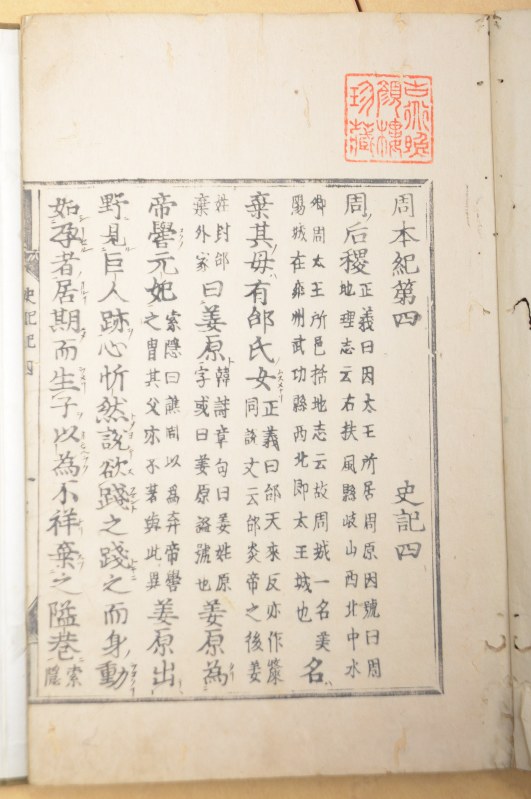 周本紀第四 史記四
周后稷正義曰因太王所居周原因號曰周
地理志云右扶風縣岐山西北中水
鄉周太王所邑括地志云故周城一名美
陽城在雍州武功縣西北即太王城也名
棄其母有邰氏女正義曰邰天來反亦作斄
同說文云邰炎帝之後姜
姓封邰
棄外家曰姜原韓詩章句曰姜姓原
字或曰姜原謚號也姜原為
帝嚳元妃索隱曰譙周以為弃帝嚳
之冑其父亦不著與此異姜原出
野見巨人跡心忻然說欲踐之踐之而身動
如孕者居期而生子以為不祥棄之隘巷索
隱
史記四